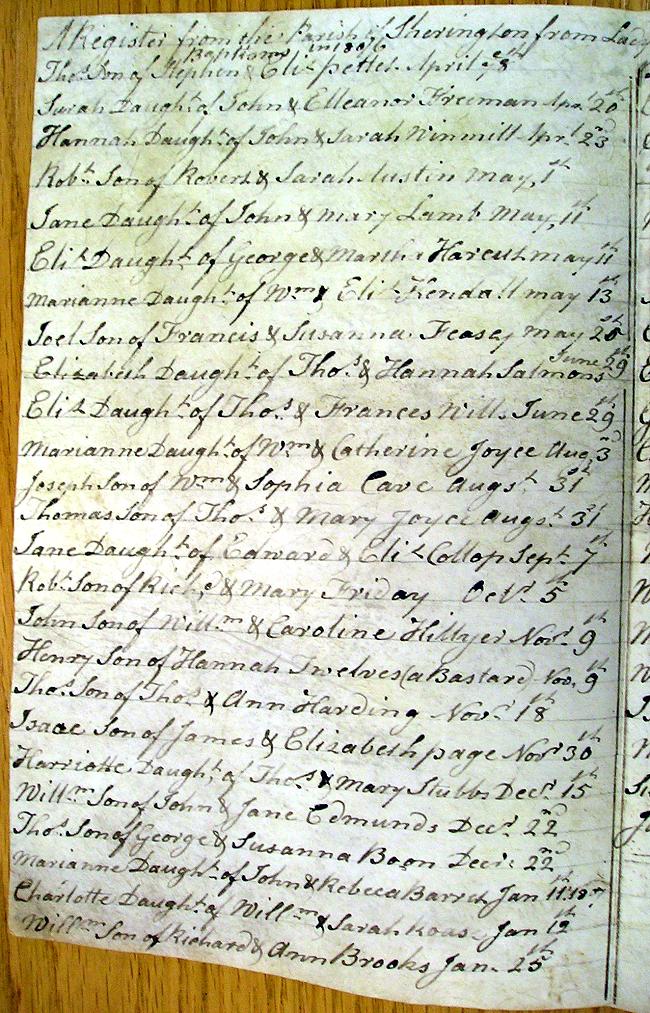 A Register from the Parish of Sherington from Lady
Baptisms in 1806
Thos. Son of Stephen & Eliz Pettet April 8th
Surah Daught. of John & Elleanor Freeman Apr. 20th
Hannah Daught. of John & Sarah Winmill Apr. 23rd
Robt. Son of Robert & Sarah Austin May, 1st
Jane Daught. of John & Mary Lamb May, 11th
Eliz. Daught. of George & Martha Harcut May 11th
Marianne Daught. of Wm. & Eliz. Kendall May 13th
Joel Son of Francis & Susanna Feasey May 25th
June 29th
Elizabeth Daught. of Thos. & Hannah Salmons
Eliz. Daught. of Thos. & Frances Wills June 29th
Marianne Daught. of Wm. & Catherine Joyce Aug, 3rd
Joseph Son of Wm. & Sophia Cave Augst. 31st
Thomas Son of Thos. & Mary Joyce Augst. 31st
Jane Daught. of Edward & Eliz. Collop Sept. 7th
Robt. Son of Richd. & Mary Friday Octr. 5th
John Son of Willm. & Caroline Hillyer Novr. 9th
Henry Son of Hannah Twelves (a Bastard) Nov. 9th
Thos. Son of Thos. & Ann Harding Novr. 18th
Isaac Son of James & Elizabeth page Novr. 30th
Harriotte Daught. of Thos. & Mary Stubbs Decr. 15th
Willm. Son of John & Jane Edmunds Decr. 22nd
Thos. Son of George & Susanna Boon Decr. 22nd
Marianne Daught. of John & Rebecca Barret Jan 11th 1807
Charlotte Daught. of Willm. & Sarah Jan 12th
Willm. Son of Richard & Ann Brooks Jan. 25th